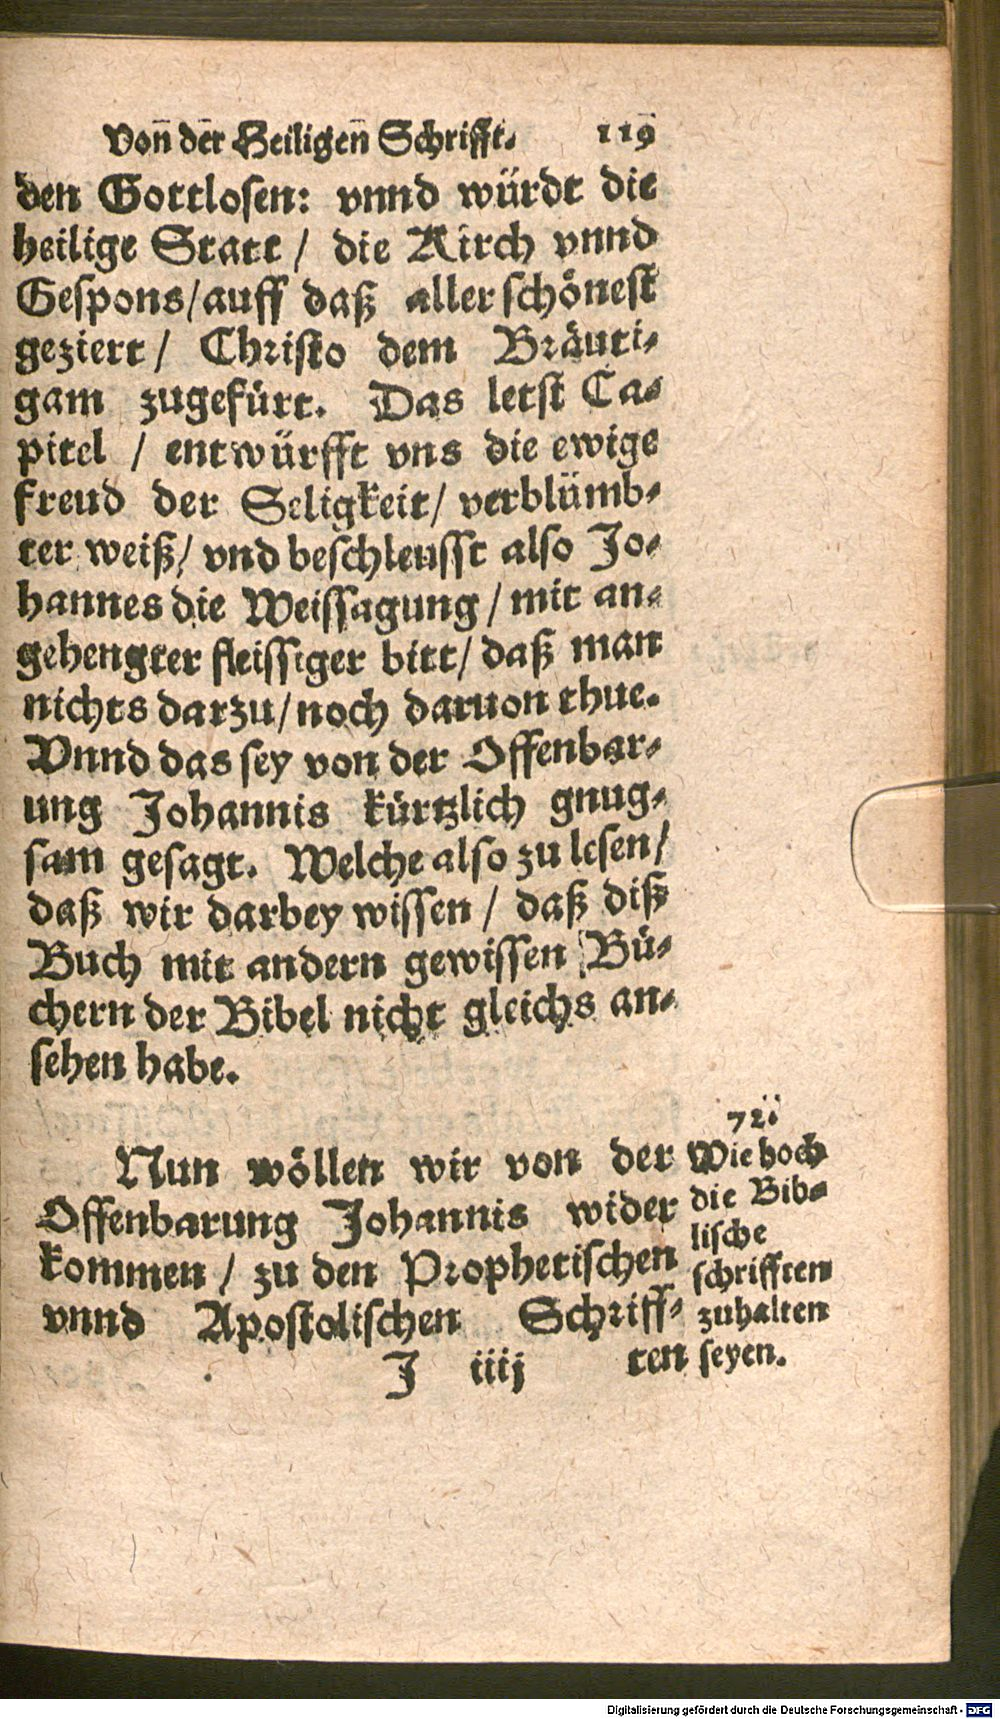 Von der Heiligen Schrifft. 119
den Gottlosen: vnnd würdt die
heilige Statt / die Kirch vnnd
Gespons/auff daß aller schönest
geziert / Christo dem Bräuti-
gam zugefürt. Das letst Ca-
pitel / entwürfft vns die ewige
freud der Seligkeit/ verblümb-
ter weiß/ vnd beschleusst also Jo-
hannes die Weissagung / mit an-
gehengter fleissiger bitt/ daß man
nichts darzu/ noch daruon thue.
Vnnd das sey von der Offenbar-
ung Johannis kürtzlich gnug-
sam gesagt. Welche also zu lesen/
daß wir darbey wissen / daß diß
Buch mit andern gewissen Bü-
chern der Bibel nicht gleichs an-
sehen habe.
Nun wöllen wir von der
Offenbarung Johannis wider
kommen / zu den Prophetischen
vnnd Apostolischen Schriff-
J iiij ten
72.
Wie hoch
die Bib-
lische
schrifften
zuhalten
seyen.
Digitalisierung gefördert durch die Deutsche Forschungsgemeinschaft - DFG